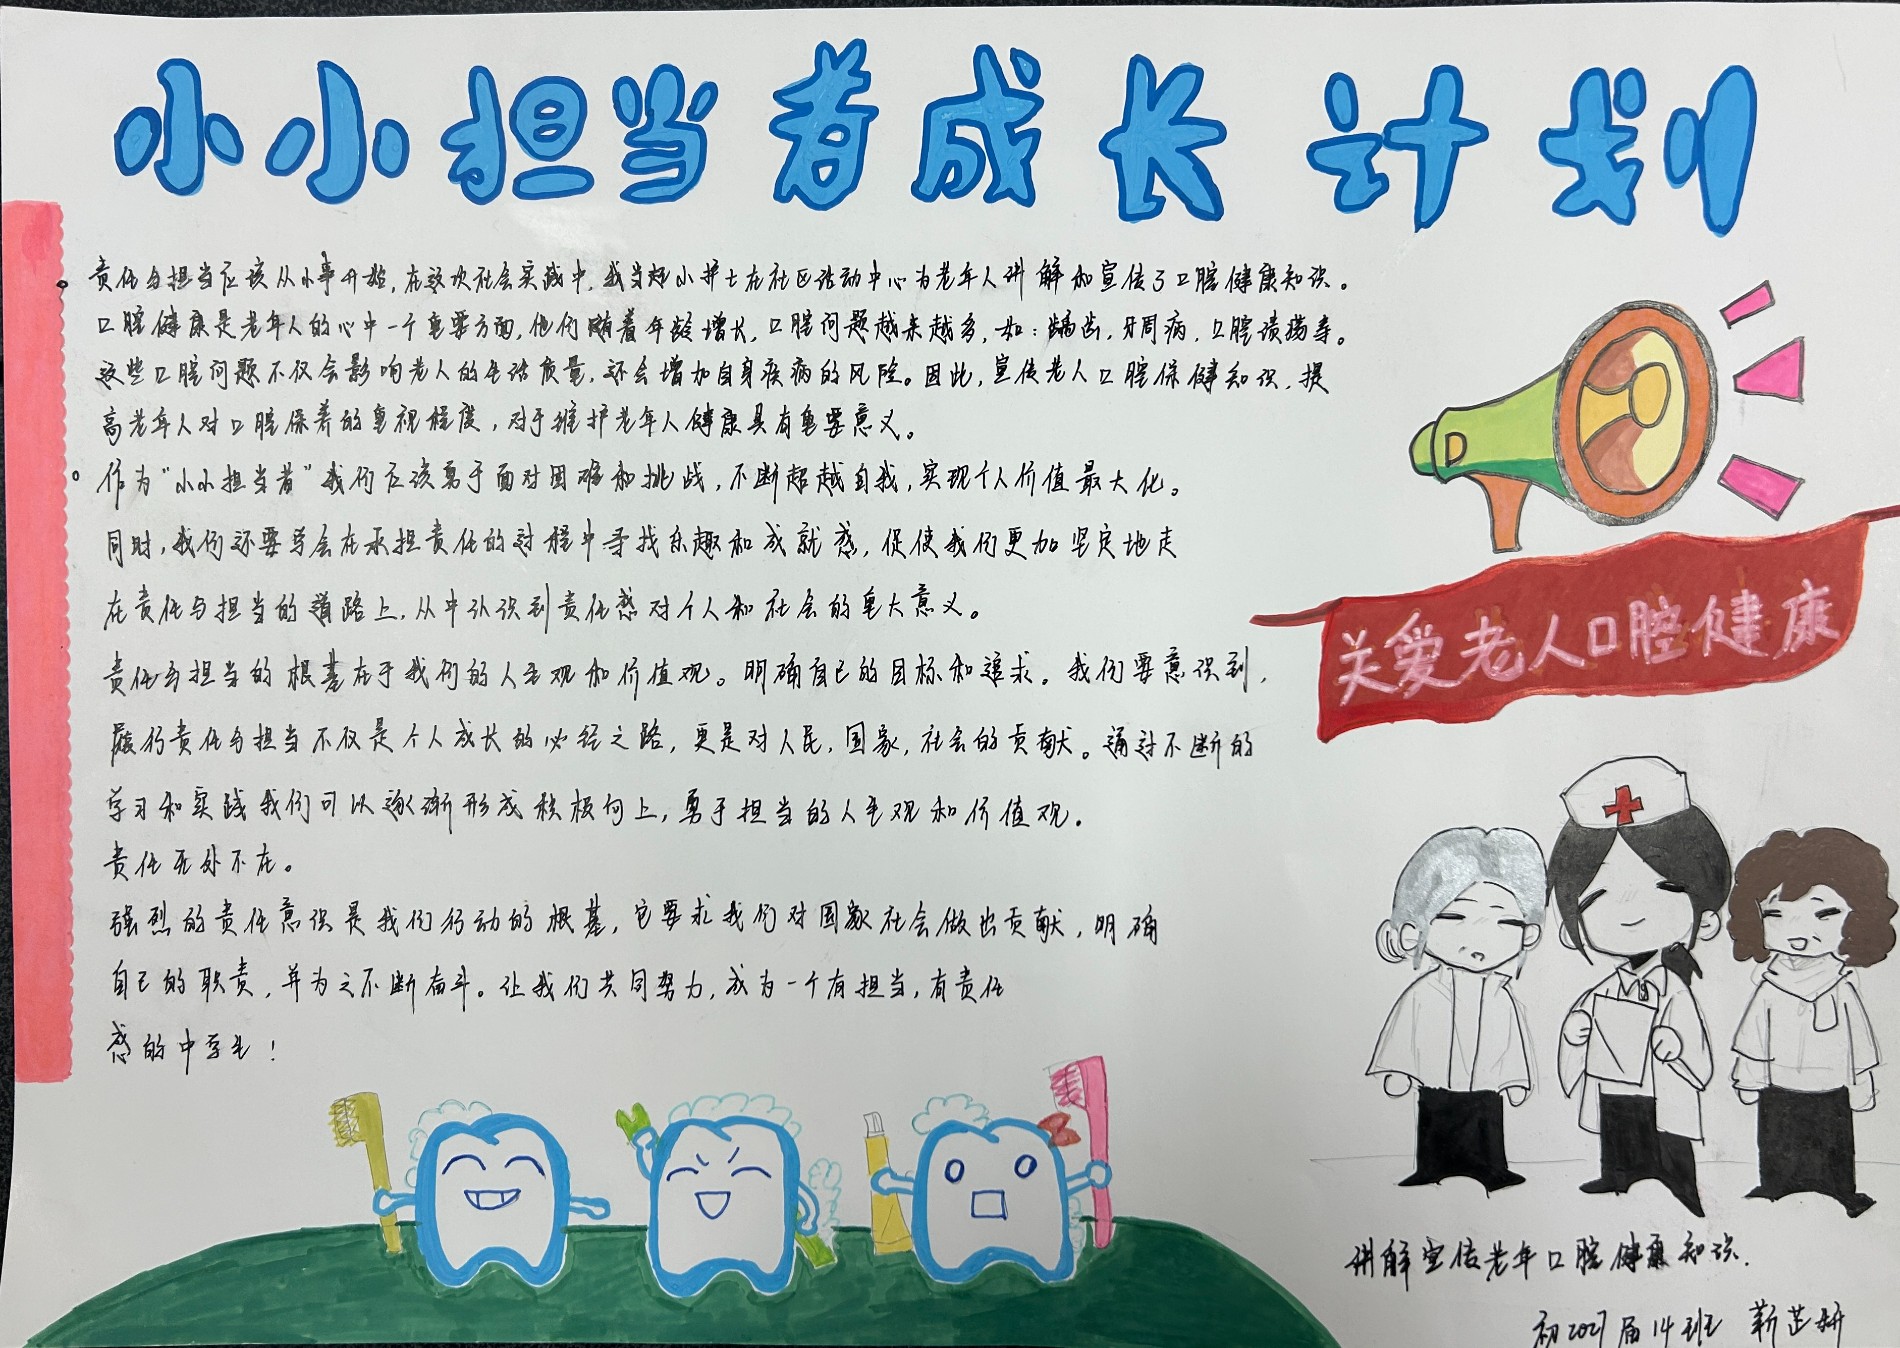 小小担当者成长计划
责任与担当应该从小事开始，在这次社会实践中，我当起小护士在社区活动中心为老年人讲解和宣传了口腔健康知识。
口腔健康是老年人的心中一个重要方面，他们随着年龄增长，口腔问题越来越多，如：龋齿，牙周病，口腔溃疡等。
这些口腔问题不仅会影响老人的生活质量，还会增加自身疾病的风险。因此，宣传老人口腔保健知识，提
高老年人对口腔保养的重视程度，对于维护老年人健康具有重要意义。
作为“小小担当者”我们应该勇于面对困难和挑战，不断超越自我，实现个人价值最大化。
同时，我们还要学会在承担责任的过程中寻找乐趣和成就感，促使我们更加坚定地走
在责任与担当的道路上，从中认识到责任感对个人和社会的重大意义。
责任与担当的根基在于我们的人生观和价值观。明确自己的目标和追求。我们要意识到，
履行责任与担当不仅是个人成长的必经之路，更是对人民，国家，社会的贡献。通过不断的
学习和实践我们可以逐渐形成积极向上，勇于担当的人生观和价值观。
责任无处不在。
强烈的责任意识是我们行动的根基，它要求我们对国家社会做出贡献，明确
自己的职责，并为之不断奋斗。让我们共同努力，成为一个有担当，有责任
感的中学生！
关爱老人口腔健康
讲解宣传老年口腔健康知识.
初2027届14班 靳芷妍